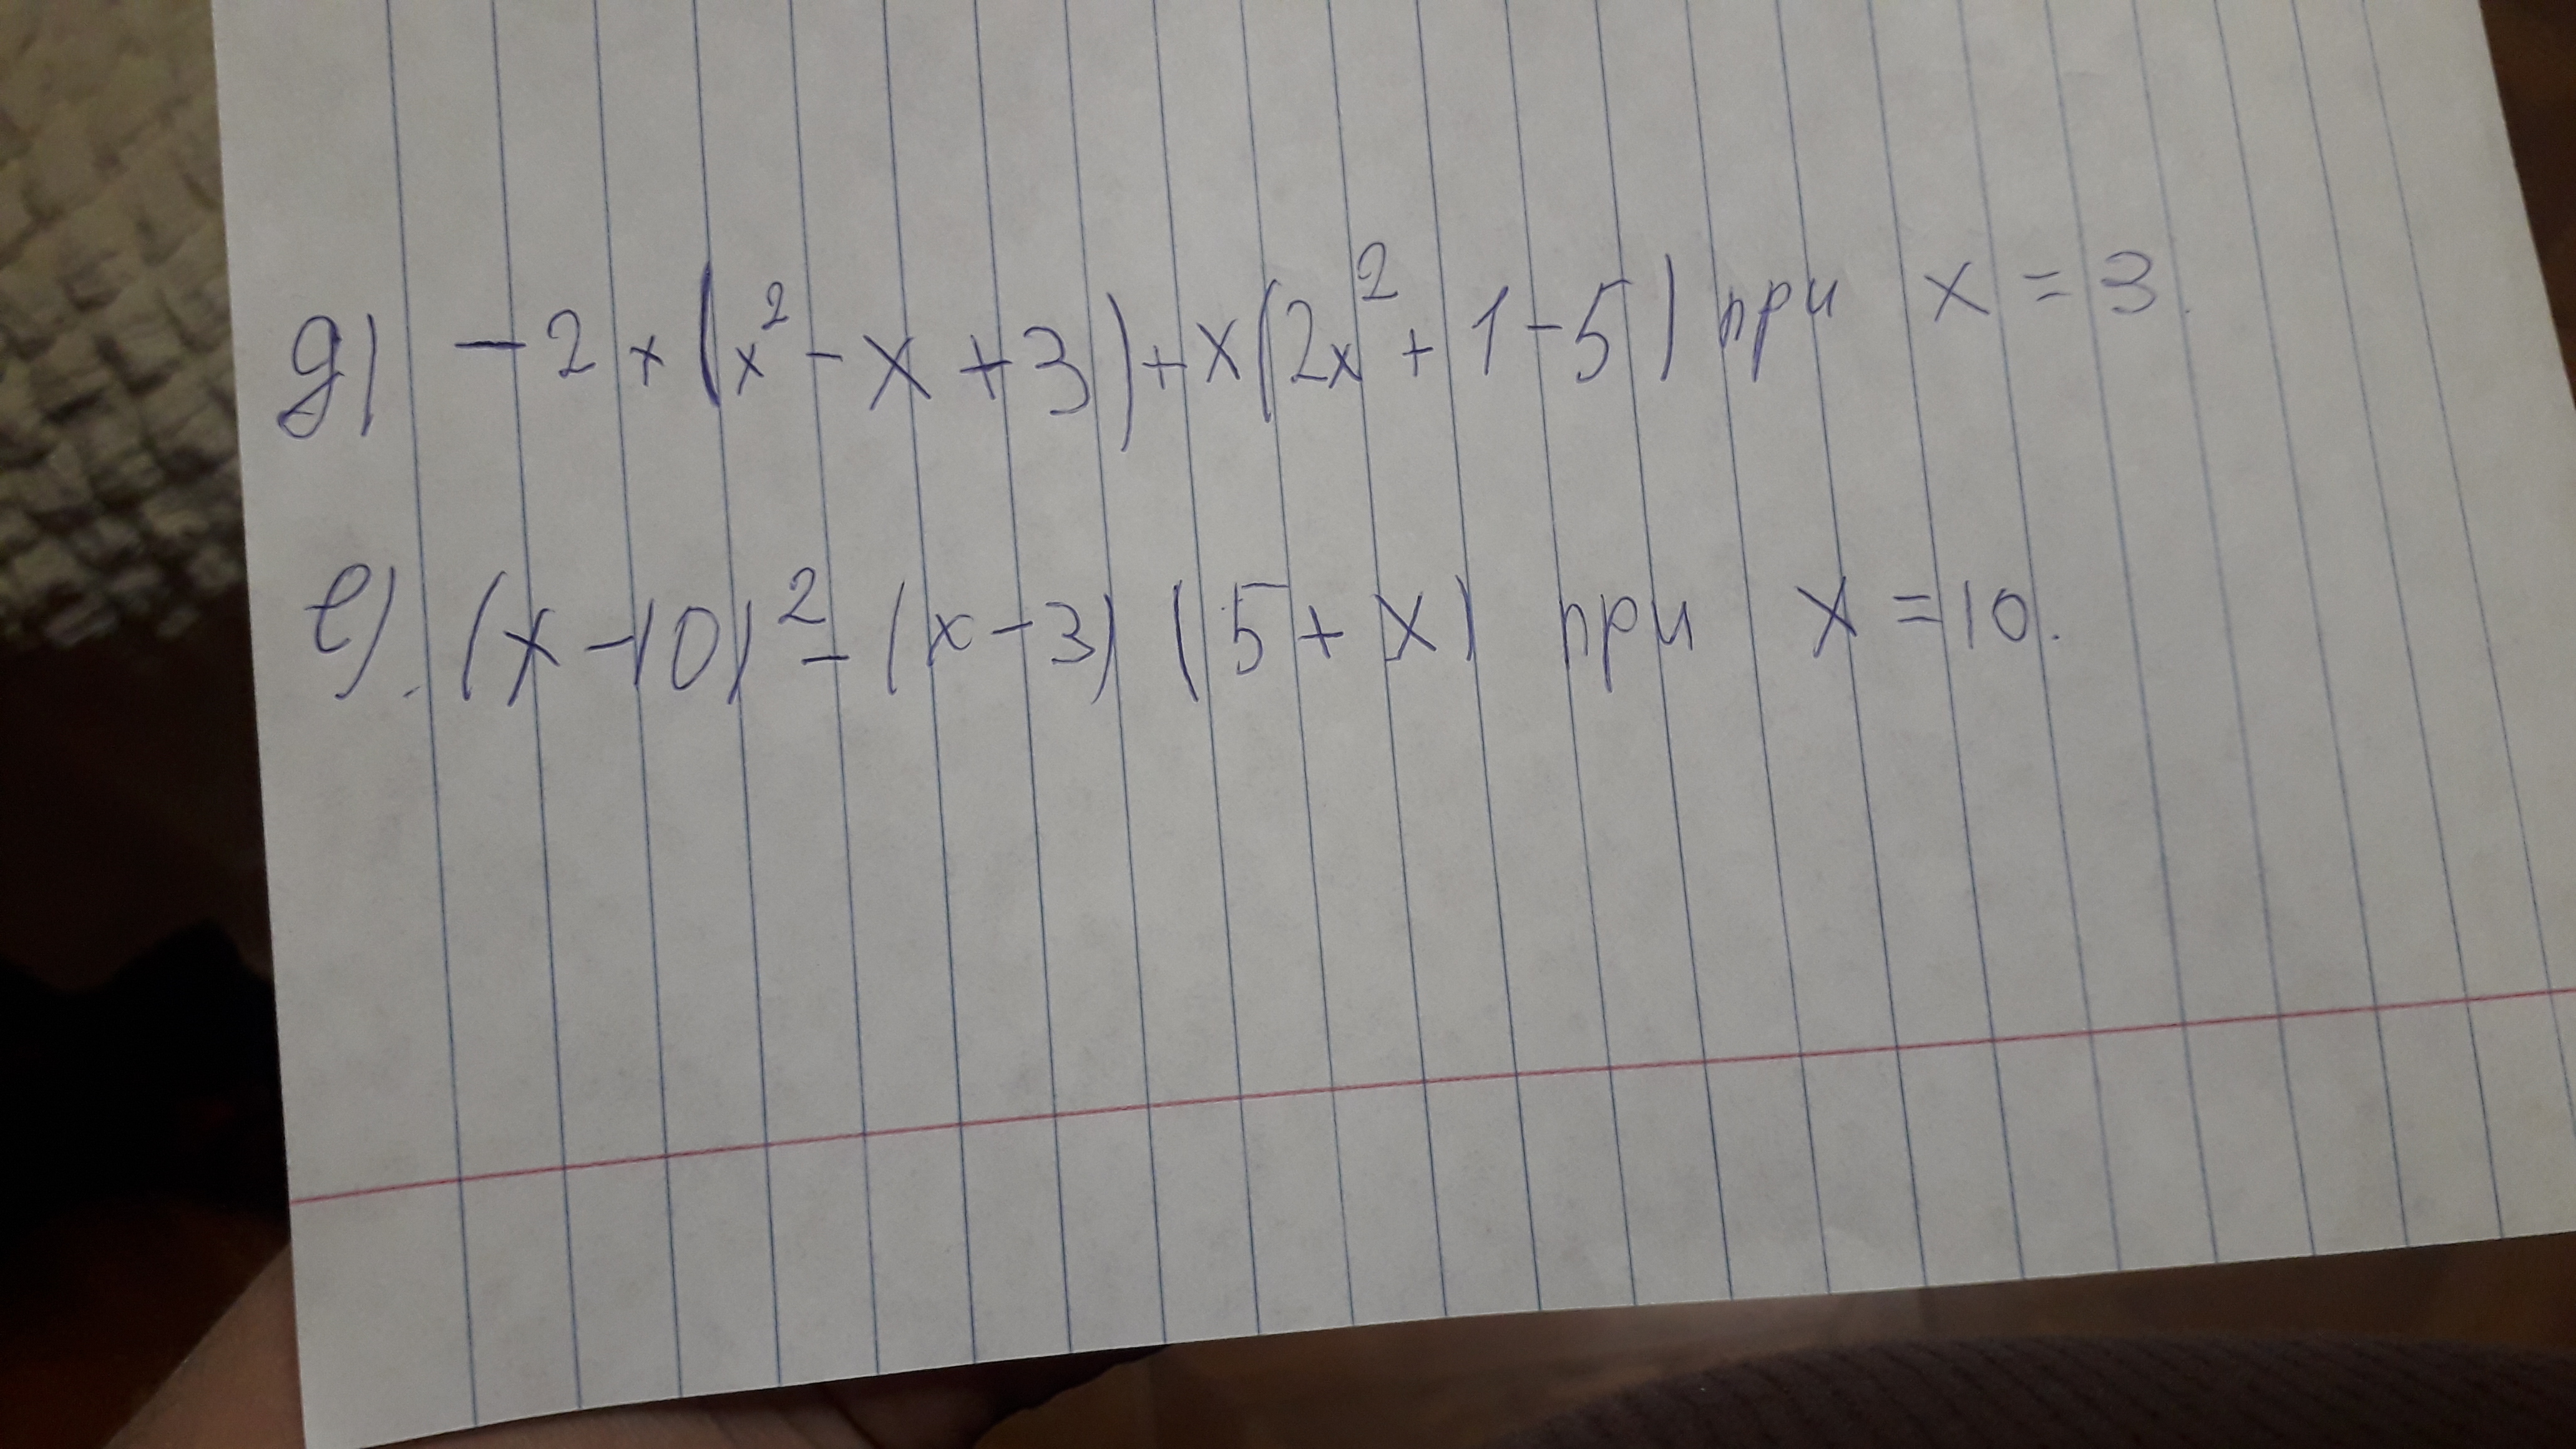 д) -2x(x²-x+3)+x(2x²+1-5) при x=3.
е). (x-10)²-(x-3)(5+x) при x=10.